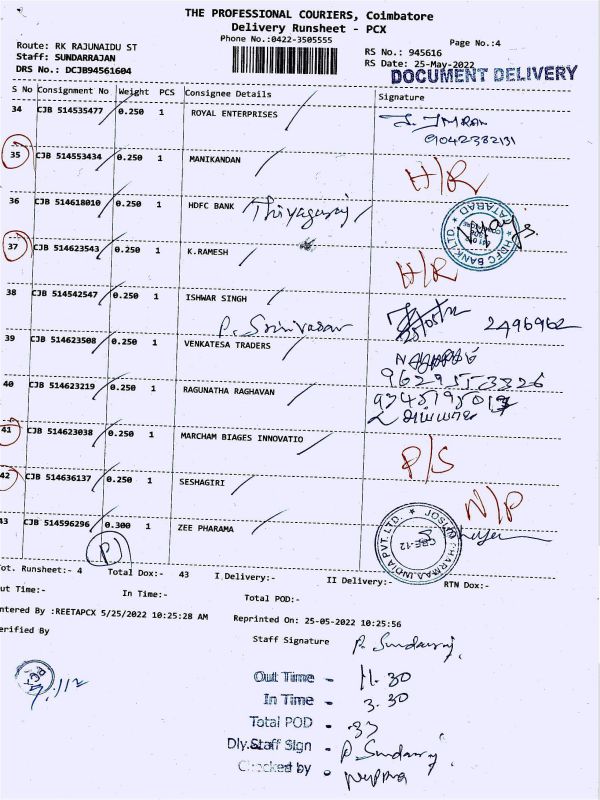 THE PROFESSIONAL COURIERS, Coimbatore
Delivery Runsheet - PCX
Phone No.:0422-3505555
Page No.:4
Route: RK RAJUNAIDU ST
RS No.: 945616
Staff: SUNDARRAJAN
RS Date: 25-May-2022
DRS No.: DCJB94561604
DOCUMENT DELIVERY
S No Consignment No Weight PCS Consignee Details Signature
34 CJB 514535477 0.250 1 ROYAL ENTERPRISES J. IMRAN
9042382131
35 CJB 514553434 0.250 1 MANIKANDAN H/R
36 CJB 514618010 0.250 1 HDFC BANK Thiyagaraj
HDFC BANK LTD.
37 CJB 514623543 0.250 1 K.RAMESH H/R
38 CJB 514542547 0.250 1 ISHWAR SINGH 2496962
P. Srinivasan
39 CJB 514623508 0.250 1 VENKATESA TRADERS
40 CJB 514623219 0.250 1 RAGUNATHA RAGHAVAN
41 CJB 514623038 0.250 1 MARCHAM BIAGES INNOVATIO P/S
42 CJB 514636137 0.250 1 SESHAGIRI N/P
43 CJB 514596296 0.300 1 ZEE PHARAMA
CBE-12
ot. Runsheet:- 4 Total Dox:- 43 I Delivery:- II Delivery:- RTN Dox:-
ut Time:- In Time:- Total POD:-
ntered By :REETAPCX 5/25/2022 10:25:28 AM Reprinted On: 25-05-2022 10:25:56
erified By
Staff Signature P. Sundarraj.
Out Time - 11.30
In Time - 3.30
Total POD - 33
Dly.Staff Sign - P. Sundarraj.
Checked by -